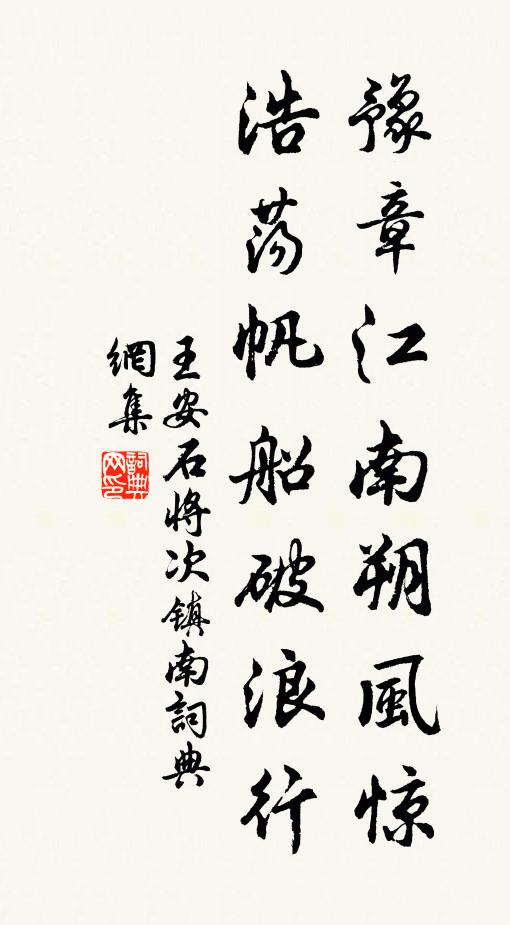 豫章江南朔風惊
浩荡帆船破浪行
王安石將次镇南詞典
網集
詞典
网印